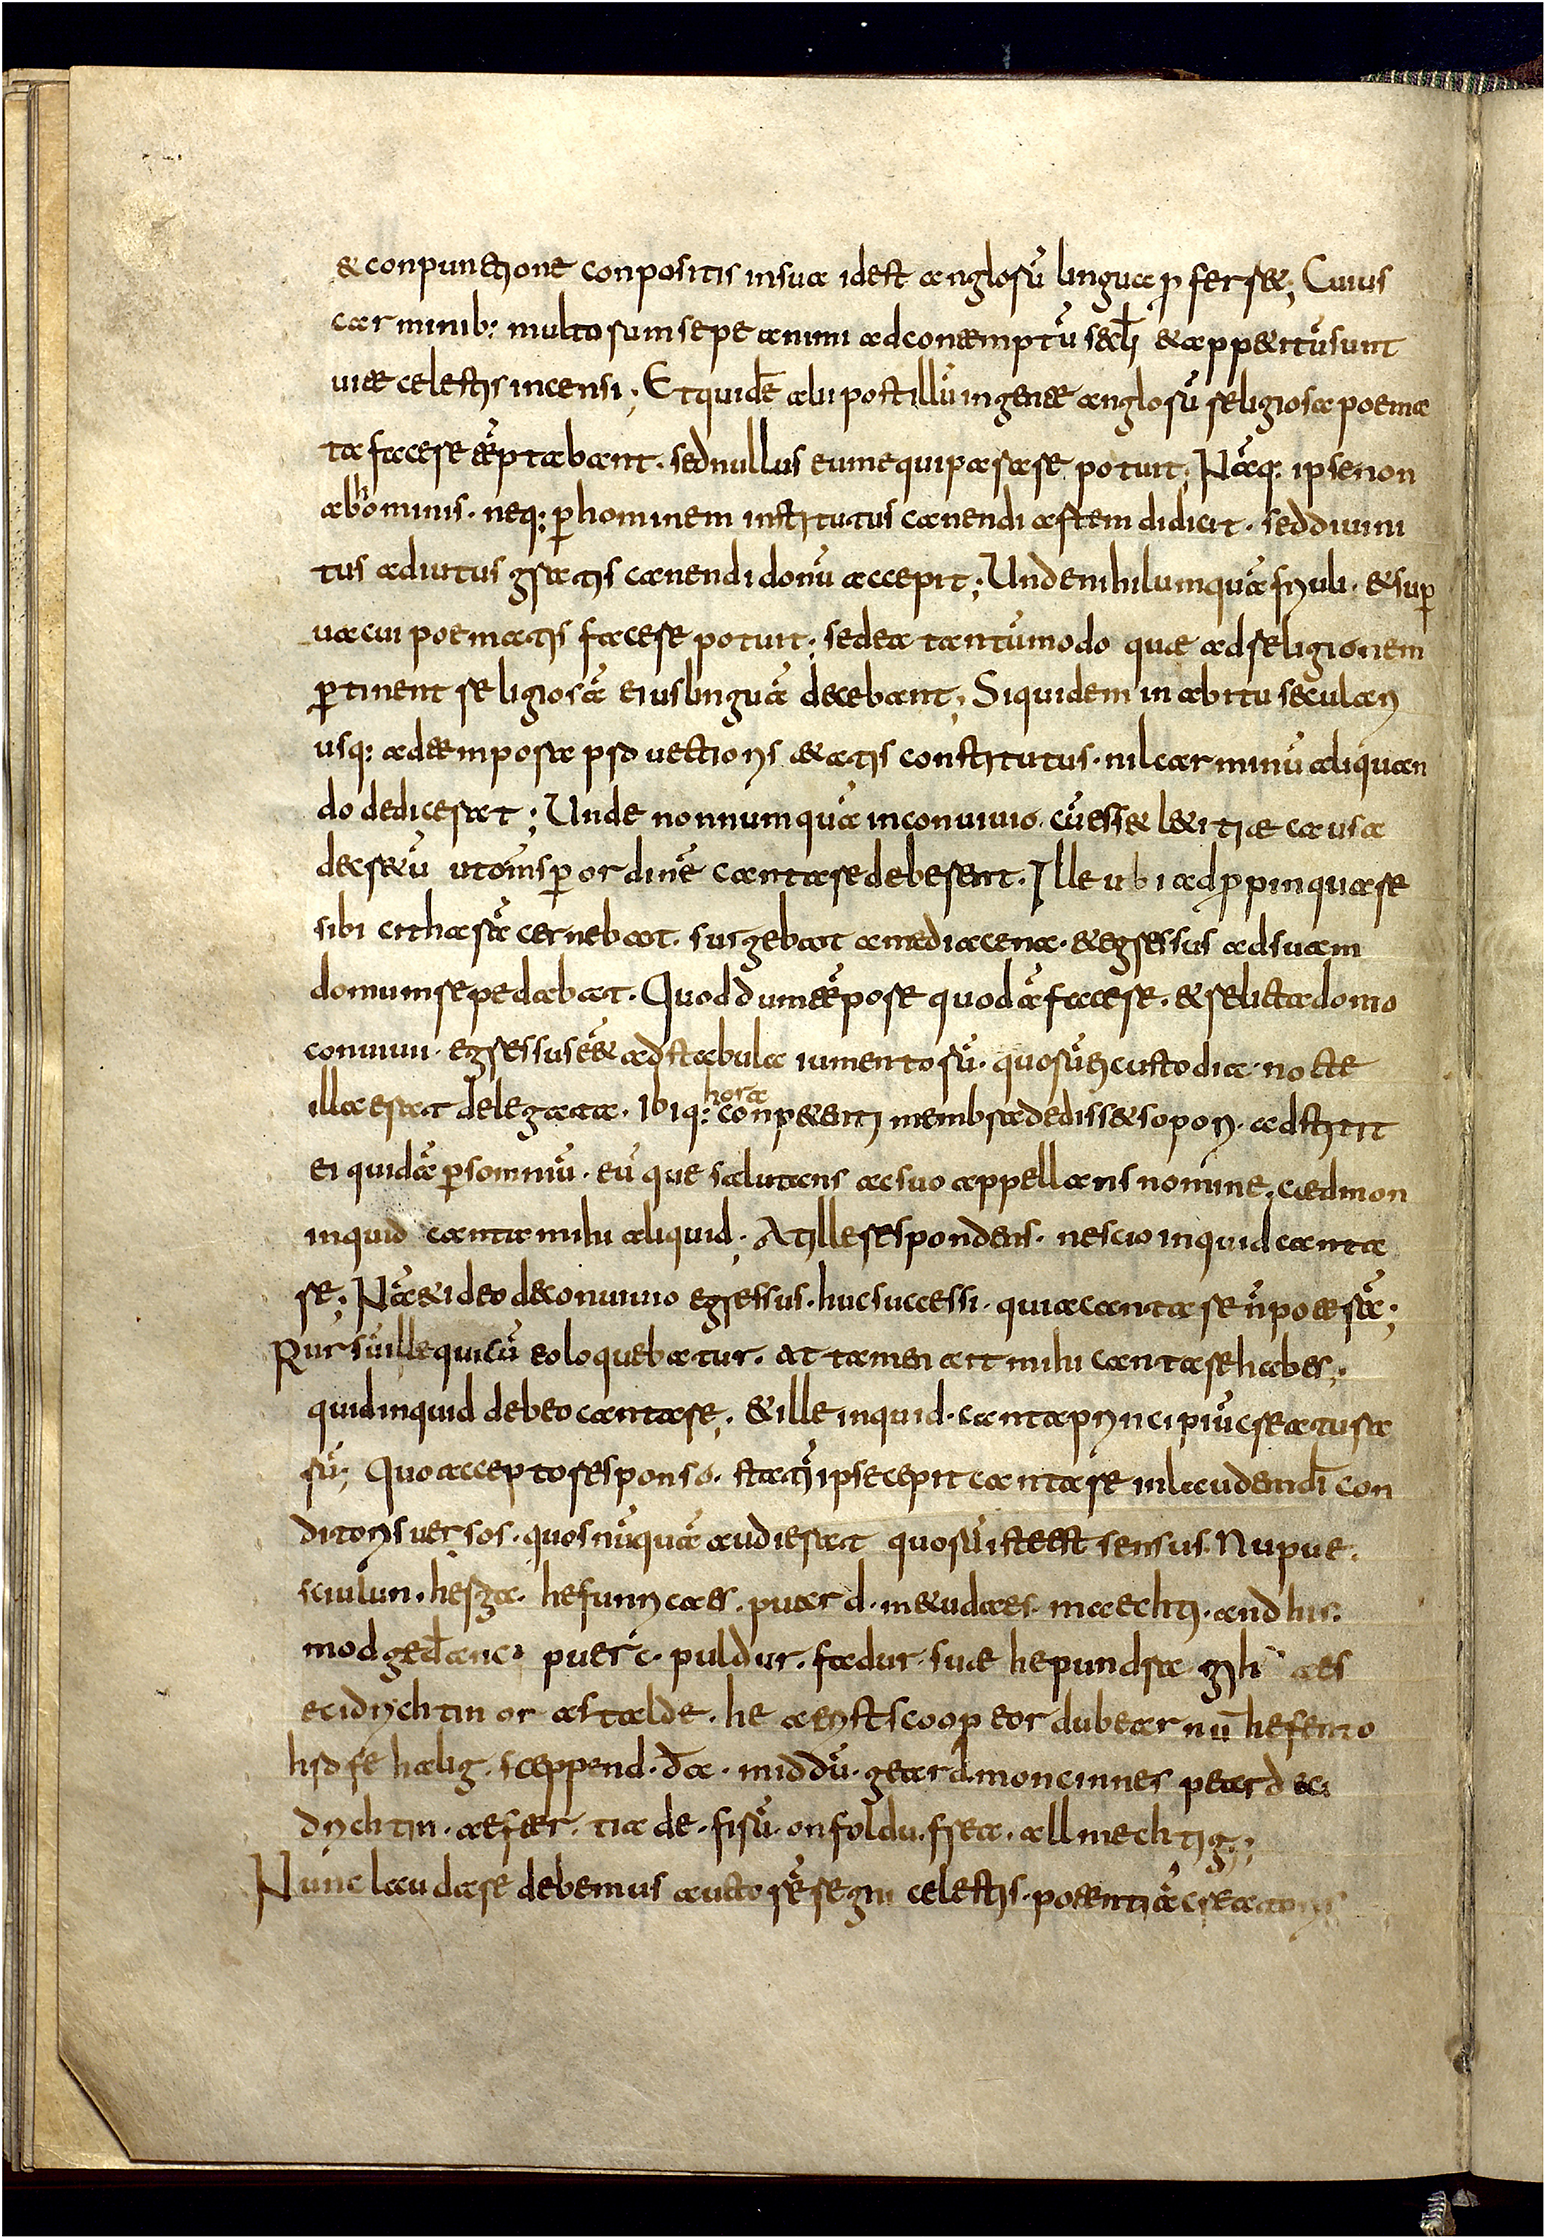 & conpunctione conpositis in sua id est anglorū lingua p ferret; Cuius
carminib: multorum sepe animi ad contemptū sæcłi & appetitū sunt
uitæ celestis incensi; Et quidē alii post illū in gente anglorū religiosa poema
ta facere tēptabant. sed nullus eum equiparare potuit; Nāq: ipse non
ab hominis. neq: p hominem institutus canendi artem didicit. sed diuini
tus adiutus gratis canendi donū accepit; Unde nihil umquā friuli. & sup
uacui poematis facere potuit; sed ea tantūmodo quæ ad religionem
ptinent religiosā eius linguā decebant; Siquidem in abitu seculari
usq: ad tempora prouectioris ætatis constitutus. nil carminū aliquan
do dedicerat; Unde nonnumquā in conuiuio. cū esset lætitiæ causa
decretū ut om̄s p ordinē cantare deberent. Ille ubi adppinquare
sibi citharā cernebat. surgebat a media cena. & egressus ad suam
domum sepedabat. Quod dum tēpore quodā faceret. & relicta domo
conuiuii egressus eēt ad stabula iumentorū. quorū ei custodia nocte
illa erat delegata. Ibiq: hora conpetenti membra dedisset sopori. adstitit
ei quidā p somniū. eū que salutans ac suo appellans nomine. cædmon
inquid canta mihi aliquid; At ille respondens. nescio inquid canta
re; Nā & ideo de conuiuio egressus. huc successi. quia cantare n̄ poterā;
Rursū ille qui cū eo loquebatur. at tamen ait mihi cantare habes;
quid inquid debeo cantare; & ille inquid. canta principiū creatura
rū; Quo accepto responso. statī ipse cepit cantare in laudem dī con
ditoris uersos. quos nūquā audierat quorū iste est sensus. Nu pue.
sciulun. herga. hefunricaes. puard. metudaes. maechti. and his.
modgedanc. puerc. puldur. fadur. suae he pundra gih aes
eci drichtin or astalde. he aerist scoop eordu bearnū hefen to
hrofe halig. sceppend. đa. middū. geard. moncinnes peard eci
drichtin. aefter. tiade. firū. on foldu. frea. allmechtig;
Nunc laudare debemus auctorē regni celestis. potentiā creatoris